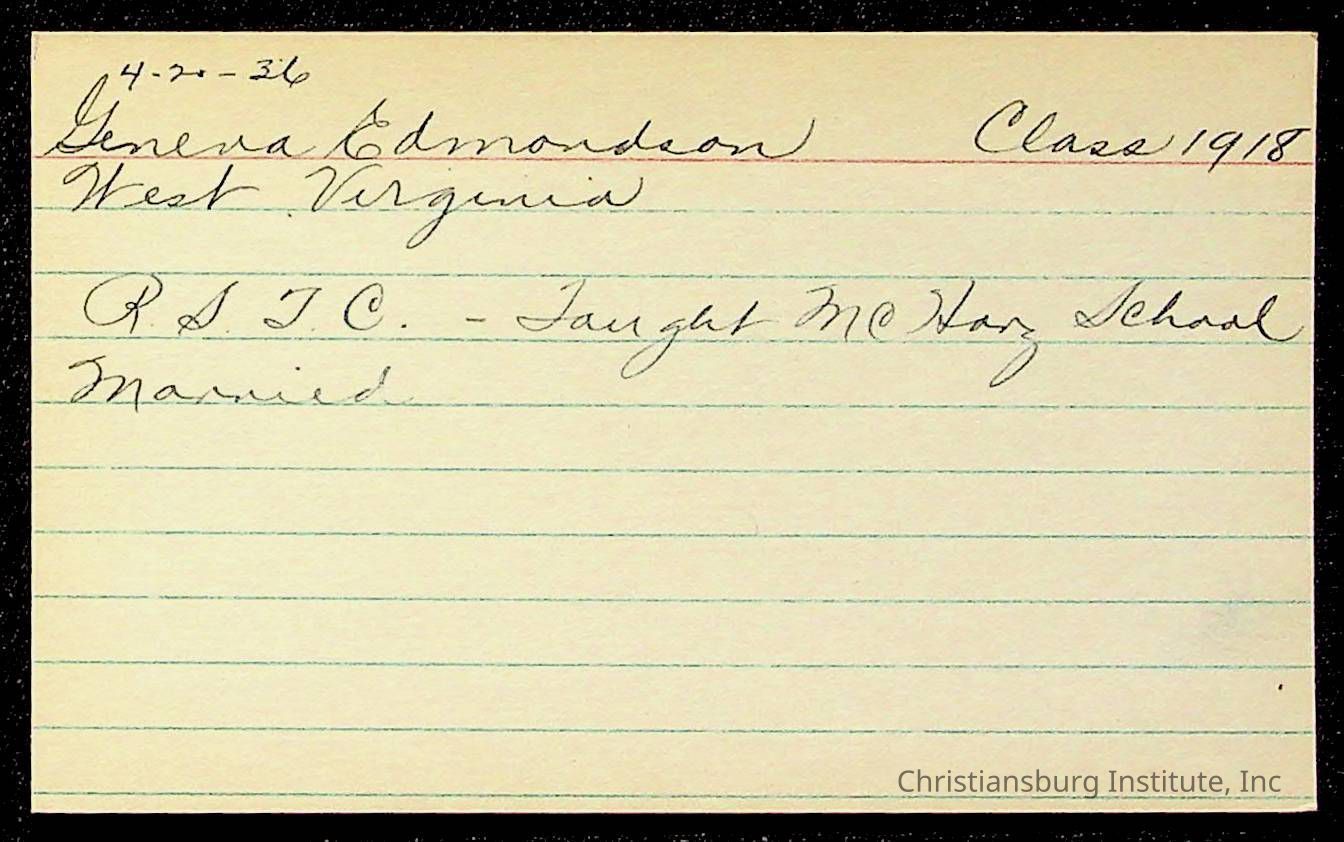 4-20-36
Geneva Edmondson Class 1918
West Virginia
R. S. T. C. - Taught McHarg School
Married
Christiansburg Institute, Inc